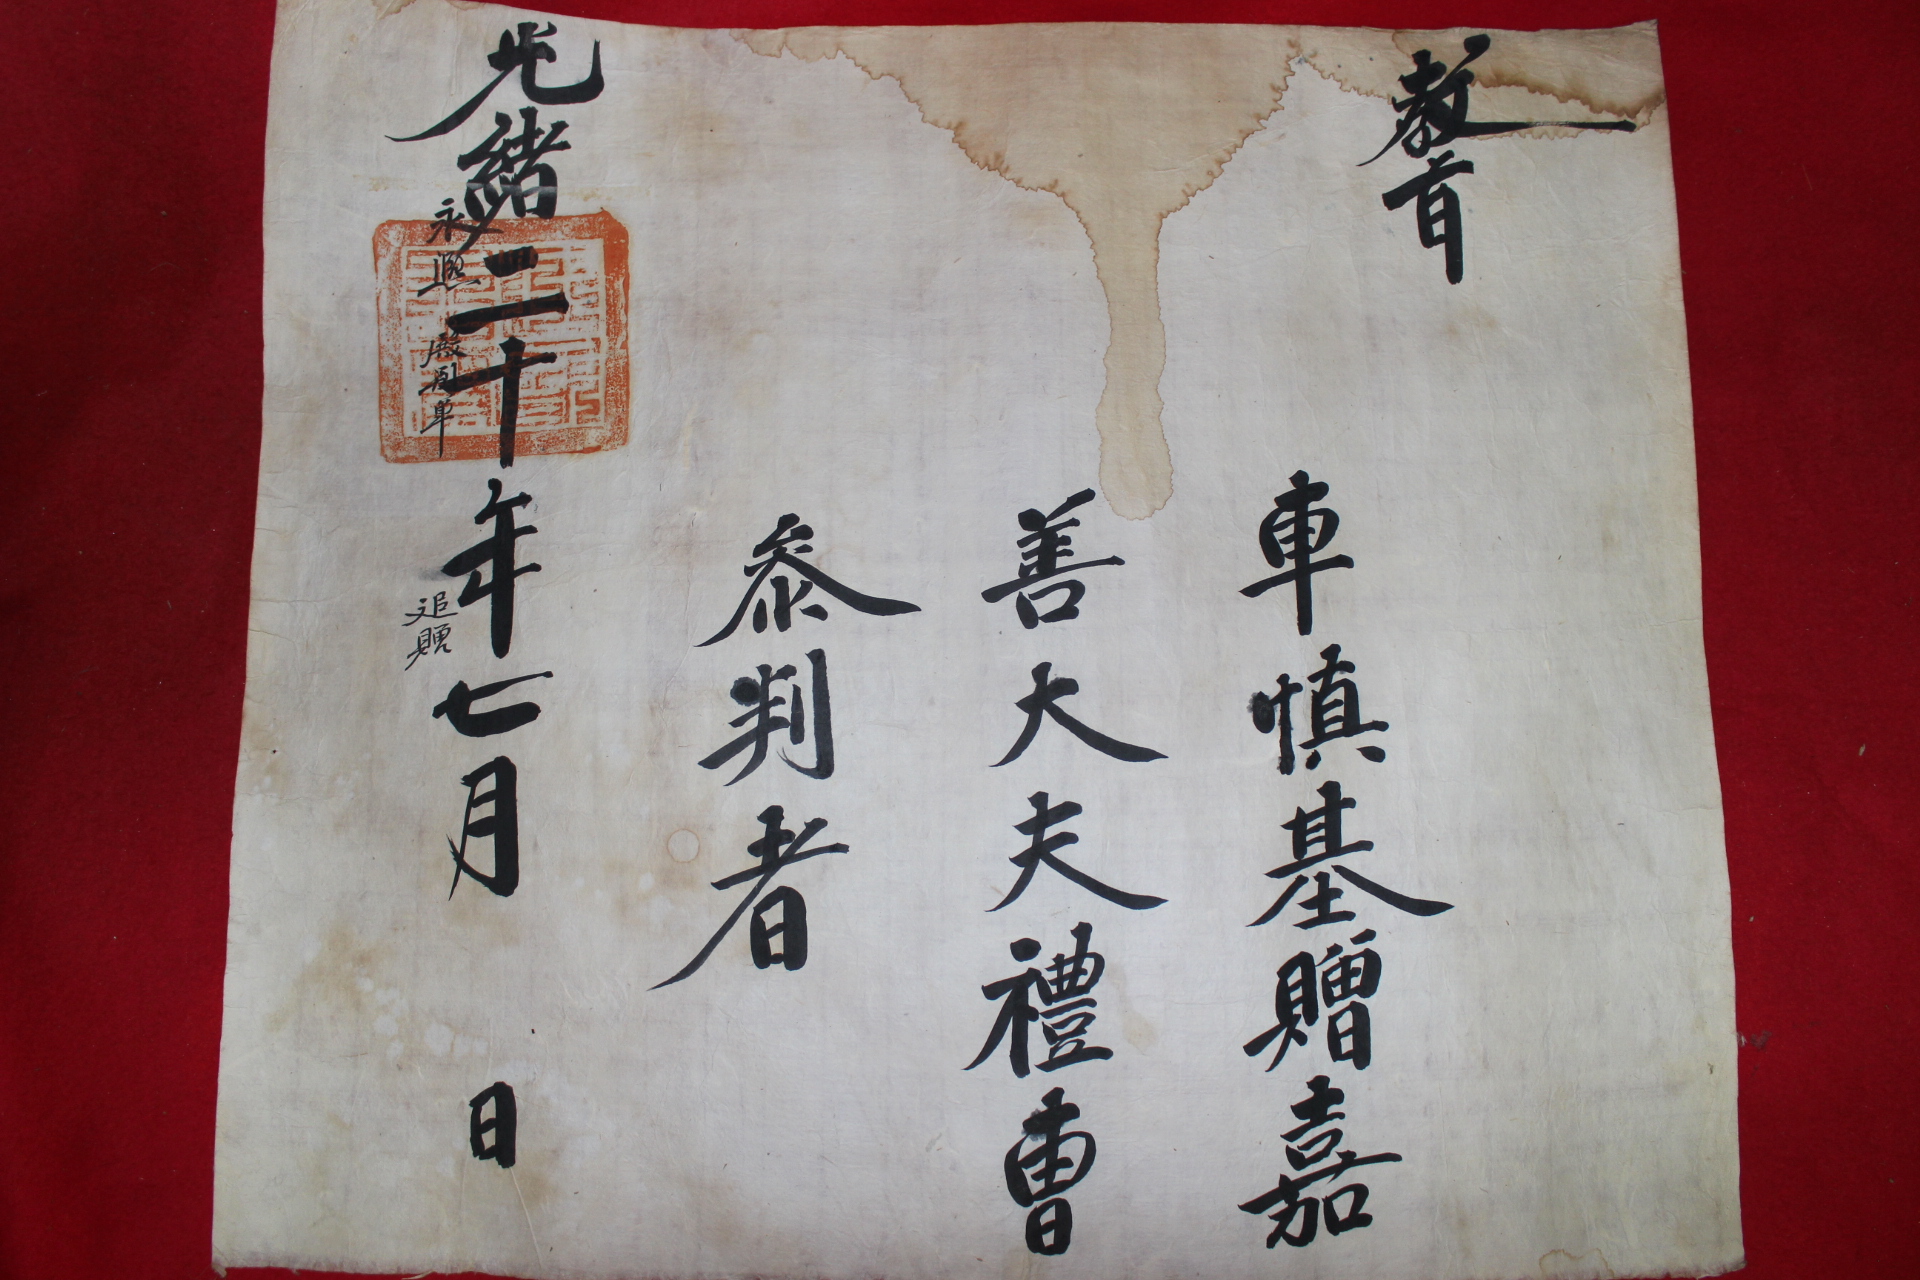 敎旨
車慎基贈嘉
善大夫禮曹
叅判者
光緖二十年七月 日
永熙殿別单
追贈